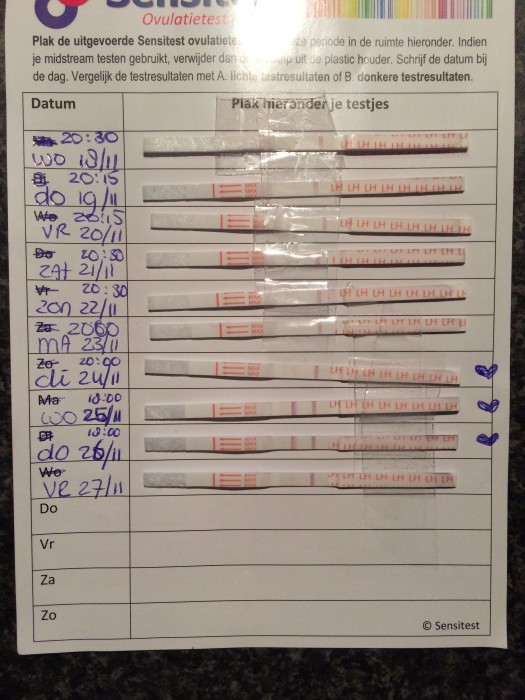 Sensitest
Ovulatietest
Plak de uitgevoerde Sensitest ovulatie periode in de ruimte hieronder. Indien
je midstream testen gebruikt, verwijder dan de strip uit de plastic houder. Schrijf de datum bij
de dag. Vergelijk de testresultaten met A. lichte testresultaten of B. donkere testresultaten.
Datum Plak hieronder je testjes
20:30
WO 18/11
LH LH LH LH LH LH LH
Di 20:15
do 19/11
MAX MAX LH LH LH LH LH LH LH
Wo 20:15
VR 20/11
MAX MAX LH LH LH LH LH LH LH
Do 20:30
ZAT 21/11
MAX MAX LH LH LH LH LH LH LH
Vr 20:30
ZON 22/11
MAX MAX LH LH LH LH LH LH LH
Za 20:00
MA 23/11
MAX MAX LH LH LH LH LH LH LH
Zo 20:00
di 24/11
MAX MAX LH LH LH LH LH LH LH
Ma 18:00
WO 25/11
MAX MAX LH LH LH LH LH LH LH
Di 18:00
do 26/11
MAX MAX LH LH LH LH LH LH LH
Wo
VR 27/11
MAX MAX LH LH LH LH LH LH LH
Do
Vr
Za
Zo
© Sensitest